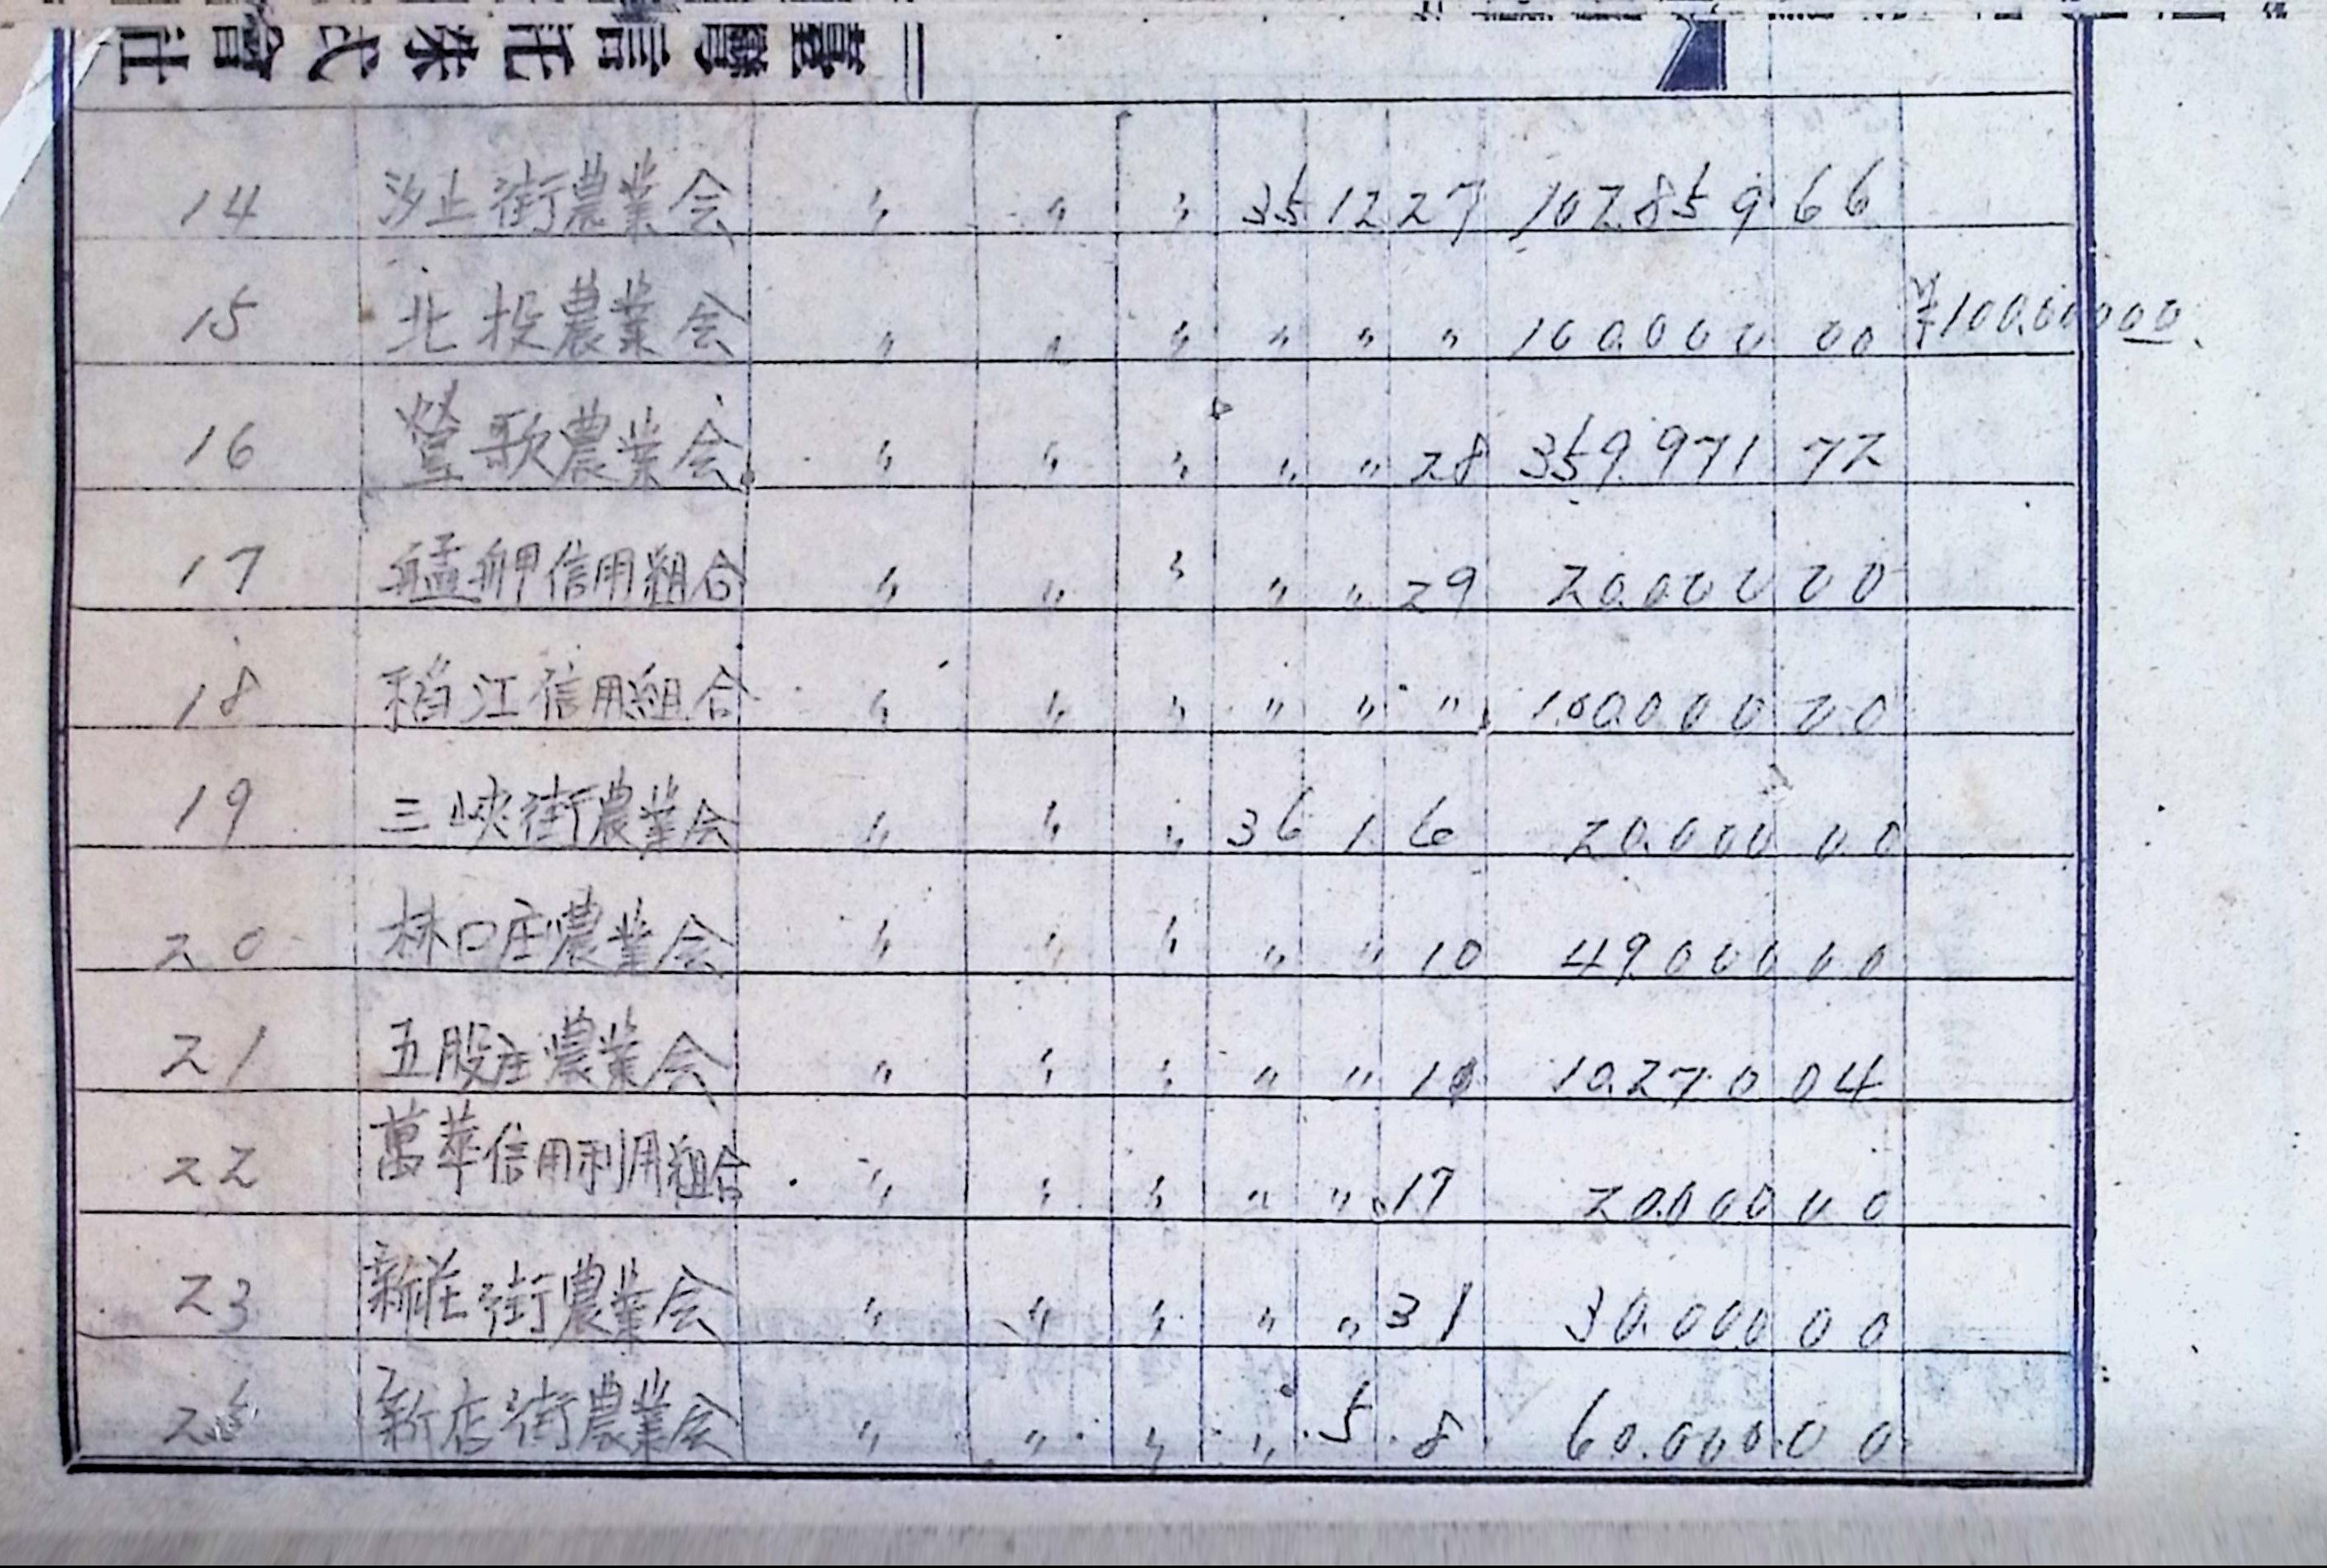 臺灣信託株式會社
14 汐止街農業会 〃 〃 〃 35 12 27 107.859 66
15 北投農業会 〃 〃 〃 〃 〃 〃 100.000 00 ¥100.00000
16 鶯歌農業会 〃 〃 〃 〃 〃 28 359.971 72
17 艋舺信用組合 〃 〃 〃 〃 〃 29 20.000 00
18 稻江信用組合 〃 〃 〃 〃 〃 〃 100.000 00
19 三峽街農業会 〃 〃 〃 36 1 6 20.000 00
20 林口庄農業会 〃 〃 〃 〃 〃 10 49.000 00
21 五股庄農業会 〃 〃 〃 〃 〃 10 10.270 04
22 萬華信用利用組合 〃 〃 〃 〃 〃 17 20.000 00
23 新莊街農業会 〃 〃 〃 〃 〃 31 30.000 00
新店街農業会 〃 〃 〃 〃 5 8 60.000 00